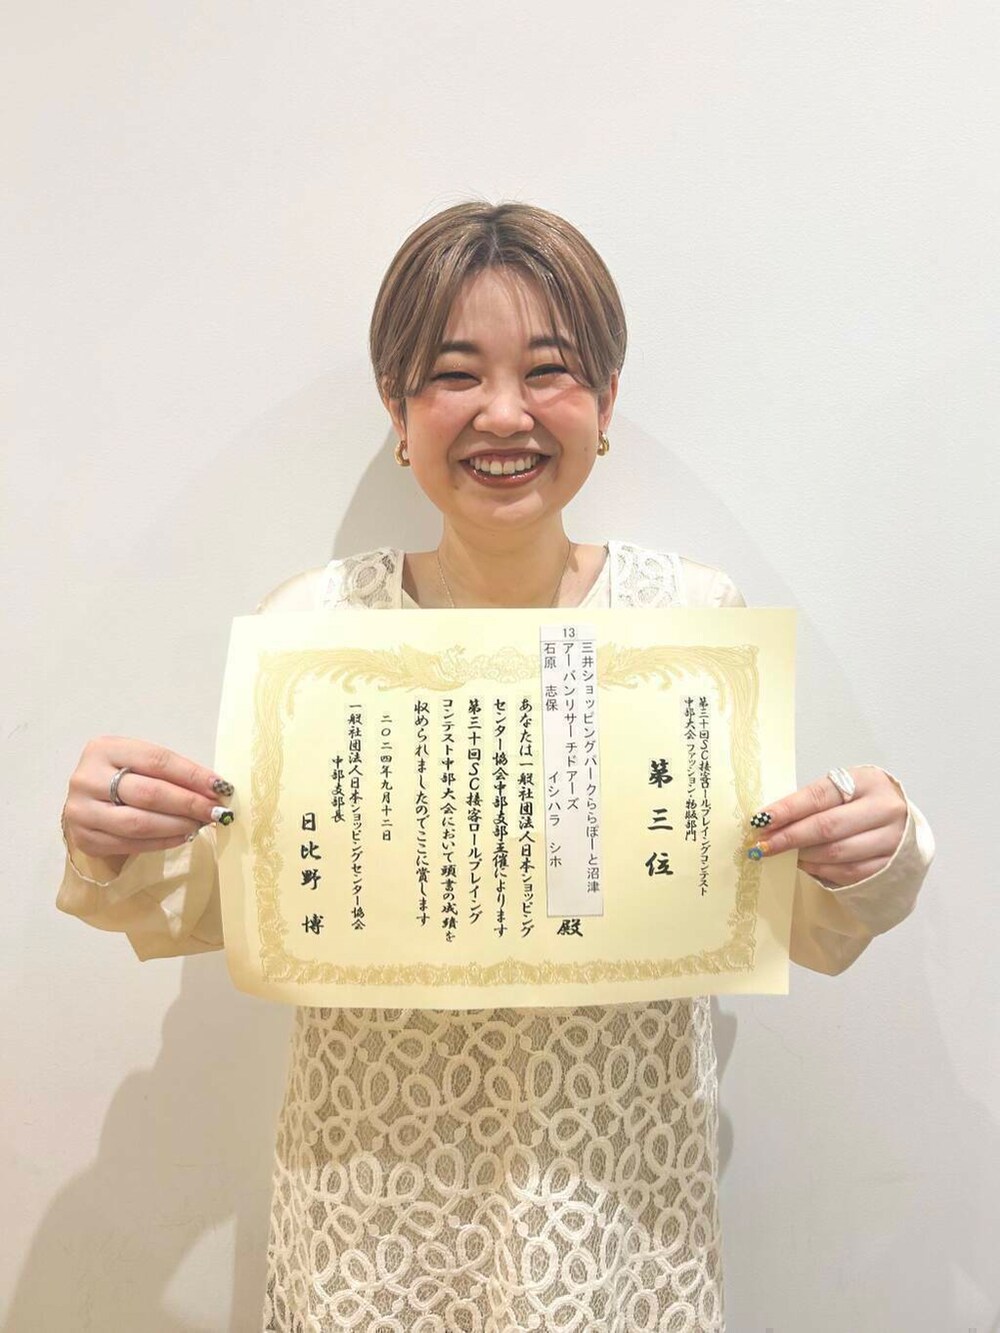 第三十回SC接客ロールプレイングコンテスト
中部大会 ファッション・物販部門
第三位
三井ショッピングパークららぽーと沼津
13
アーバンリサーチドアーズ
石原 志保 イシハラ シホ
殿
あなたは一般社団法人日本ショッピング
センター協会中部支部主催によります
第三十回SC接客ロールプレイング
コンテスト中部大会において頭書の成績を
収められましたのでここに賞します
二〇二四年九月十二日
一般社団法人日本ショッピングセンター協会
中部支部長
日比野 博